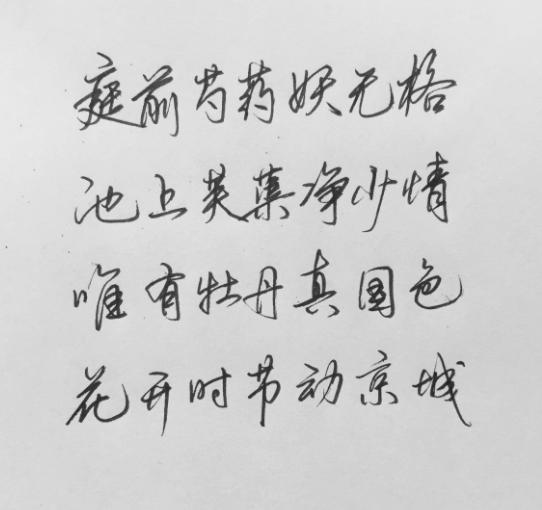 庭前芍药妖无格
池上芙蕖净少情
唯有牡丹真国色
花开时节动京城